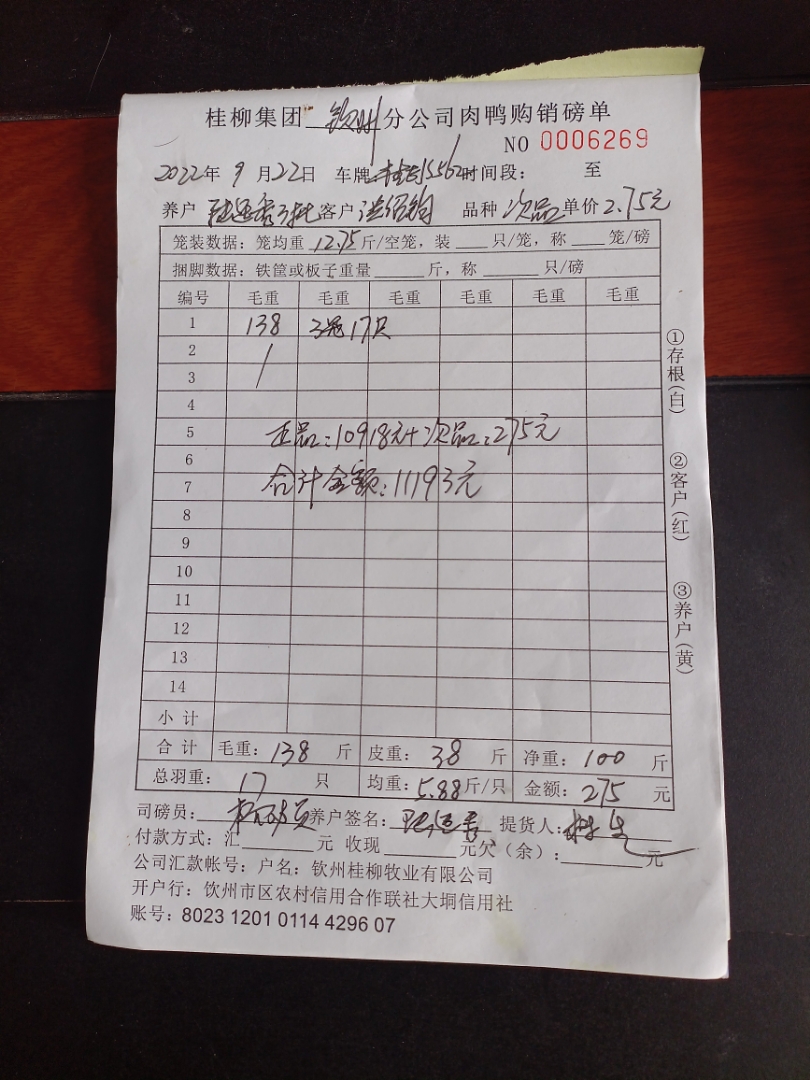 桂柳集团 钦州 分公司肉鸭购销磅单
NO 0006269
2022年 9 月 22日 车牌: 时间段: 至
养户 客户 品种 次品 单价 2.75元
笼装数据: 笼均重 12.75 斤/空笼, 装 ___ 只/笼, 称 ___ 笼/磅
捆脚数据: 铁筐或板子重量 ______ 斤, 称 ______ 只/磅
编号 毛重 毛重 毛重 毛重 毛重 毛重
1 138 3笼 17只
2
3
4
5 正品:10918元+次品:275元
6
7 合计金额:11193元
8
9
10
11
12
13
14
小 计
合 计 毛重: 138 斤 皮重: 38 斤 净重: 100 斤
总羽重: 17 只 均重: 5.88 斤/只 金额: 275 元
司磅员: 养户签名: 提货人:
付款方式: 汇______元 收现______元欠(余):______元
公司汇款帐号: 户名: 钦州桂柳牧业有限公司
开户行: 饮州市区农村信用合作联社大垌信用社
账号: 8023 1201 0114 4296 07
①存根(白) ②客户(红) ③养户(黄)